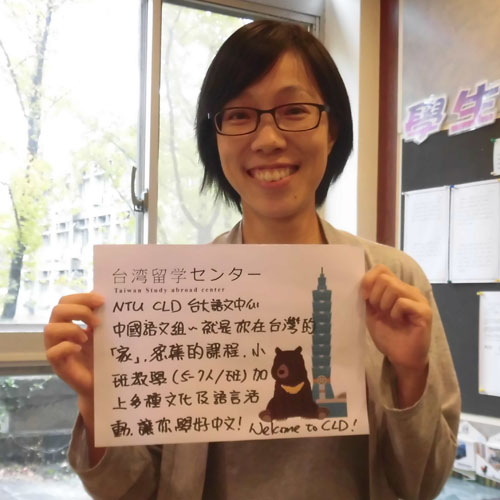 學生
台湾留学センター
Taiwan Study abroad center
NTU CLD 台大語文中心
中國語文組~就是你在台灣的
「家」.密集的課程.小
班教學(5-7人/班)加
上多種文化及語言活
動,讓你學好中文! Welcome to CLD!